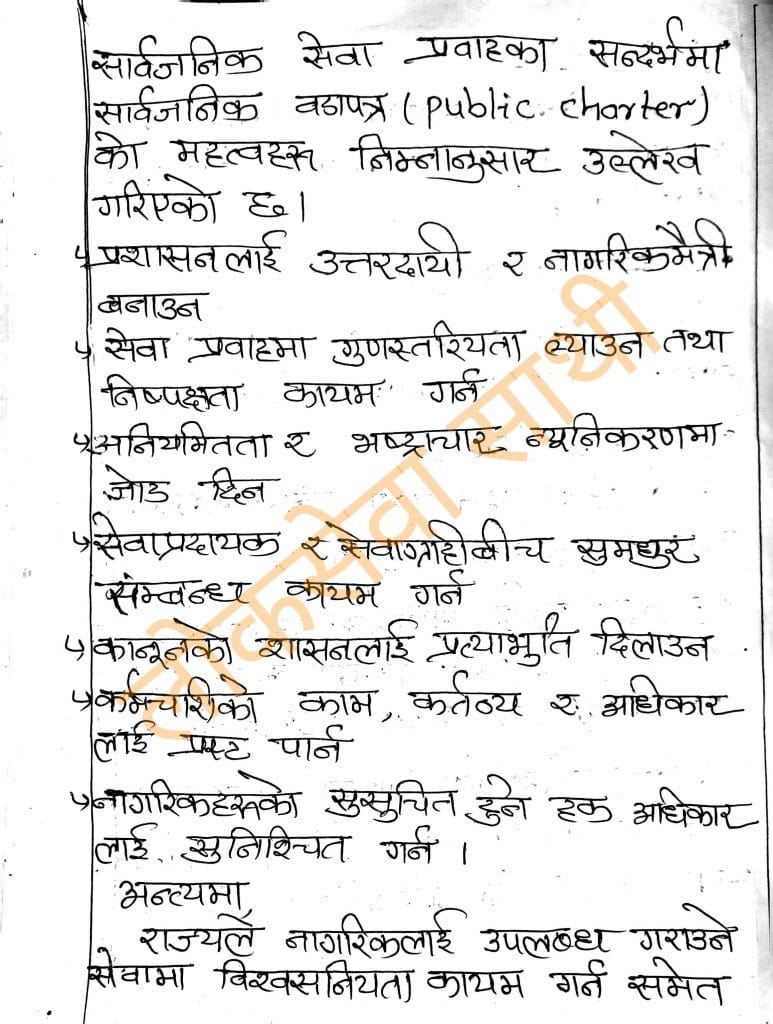 सार्वजनिक सेवा प्रवाहका सन्दर्भमा
सार्वजनिक वडापत्र (public charter)
को महत्वहरू निम्नानुसार उल्लेख
गरिएको छ।
↳ प्रशासनलाई उत्तरदायी र नागरिकमैत्री
बनाउन
↳ सेवा प्रवाहमा गुणस्तरियता ल्याउन तथा
निष्पक्षता कायम गर्न
↳ अनियमितता र भष्ट्राचार न्यूनिकरणमा
जोड दिन
↳ सेवाप्रदायक र सेवाग्राहीबीच सुमधुर
संम्बन्ध कायम गर्न
↳ कानूनको शासनलाई प्रत्याभुति दिलाउन
↳ कर्मचारीको काम, कर्तव्य र अधिकार
लाई प्रस्ट पार्न
↳ नागरिकहरूको सुसुचित हुने हक अधिकार
लाई सुनिश्चित गर्न ।
अन्त्यमा,
राज्यले नागरिकलाई उपलब्ध गराउने
सेवामा विश्वसनियता कायम गर्न समेत
लोकसेवा साथी